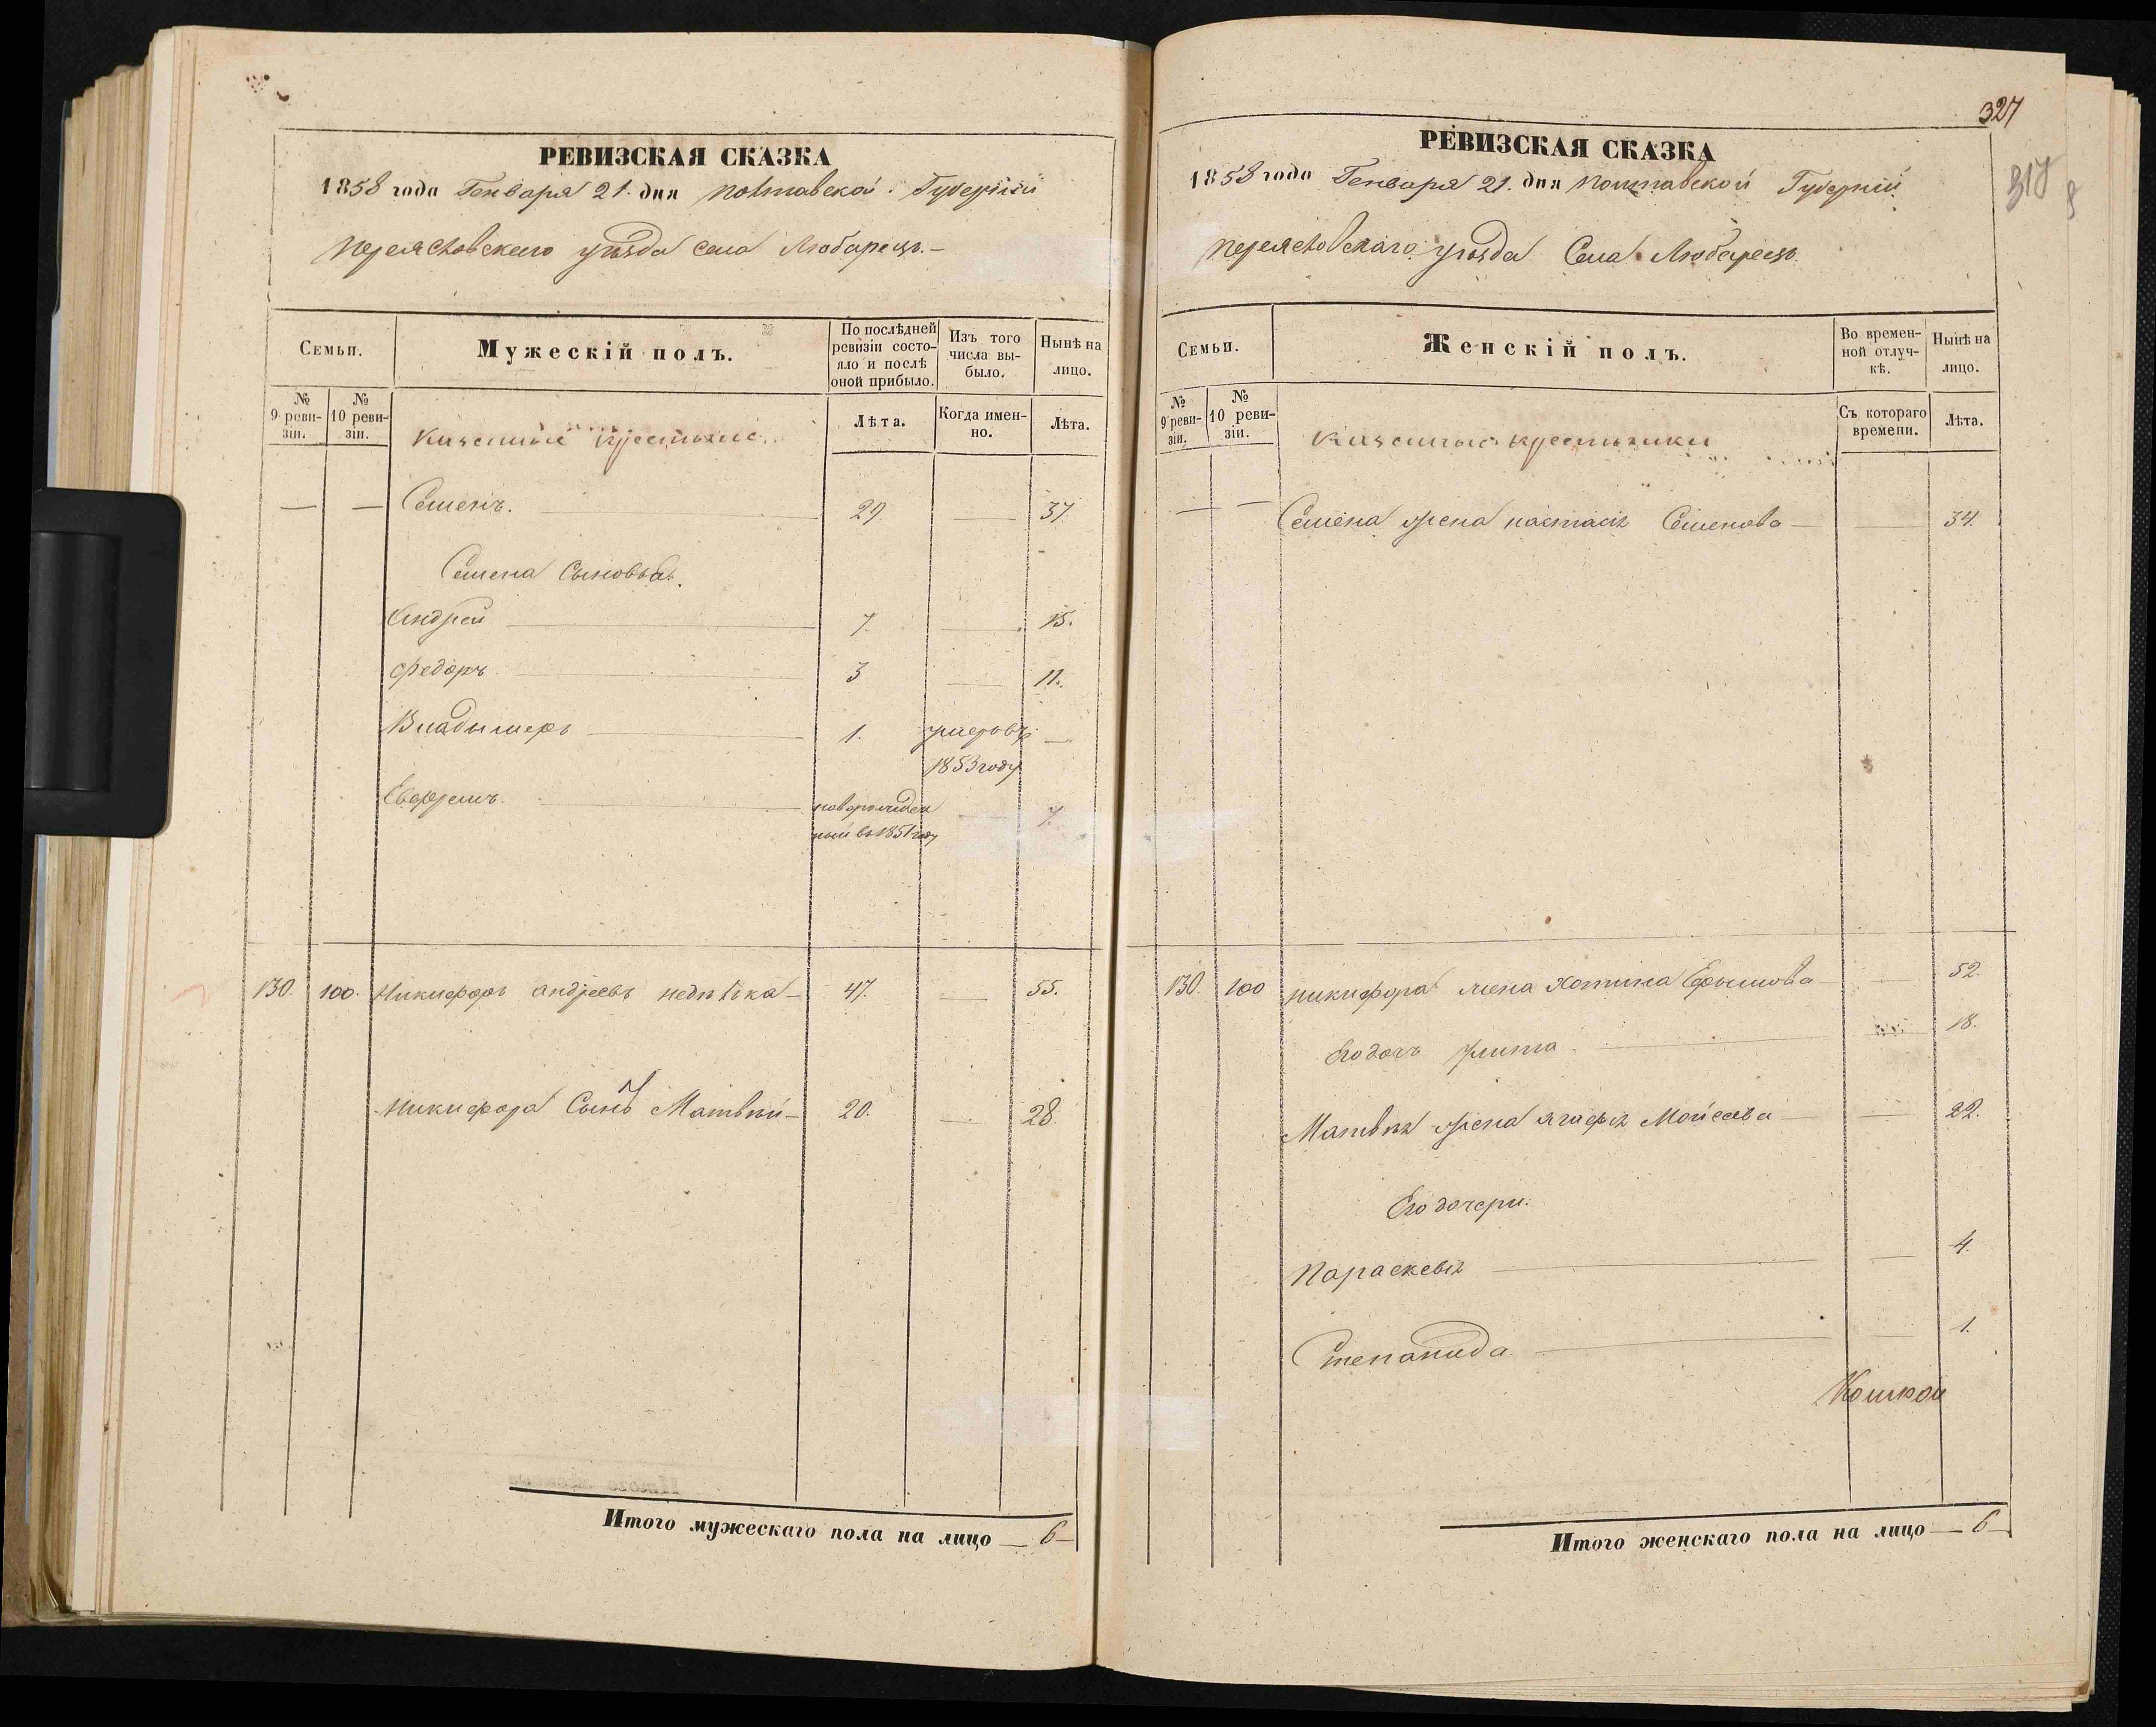 РЕВИЗСКАЯ СКАЗКА
1858 года Генваря 21. дня Полтавской Губерніи
Переясловского уѣзда села Любарецъ.—
Семьи.
Мужескій полъ.
По послѣдней ревизіи состояло и послѣ оной прибыло.
Изъ того числа выбыло.
Нынѣ на лицо.
№ 9 ревизіи.
№ 10 ревизіи.
Казенные крестьяне.
Лѣта.
Когда именно.
Лѣта.
— — Семенъ. — 29. — 37.
Семена Сыновья.
Андрей — 7. — 15.
Федоръ — 3 — 11.
Владымеръ — 1. умеръ въ —
1853 году
Евфремъ. — новорожден — 7.
ный въ 1851 году
130. 100. Никифоръ андреевъ — 47. — 55.
Никифора Сынъ Матвѣй — 20. — 28.
Итого мужескаго пола на лицо — 6 —
327
317
РЕВИЗСКАЯ СКАЗКА
1858 года Генваря 21. дня Полтавской Губерніи
Переясловскаго уѣзда Села Любарецъ.
Семьи.
Женскій полъ.
Во временной отлучкѣ.
Нынѣ на лицо.
№ 9 ревизіи.
№ 10 ревизіи.
Казенные крестьянки
Съ котораго времени.
Лѣта.
— — Семена жена настасія Семенова — 34.
130. 100 никифора жена Ефымова — 52.
Его дочъ улита. — 18.
Матвѣя жена агафія Мойсеева — 22.
Его дочери.
Параскевія — 4.
Степанида — 1.
Итого женскаго пола на лицо — 6 —